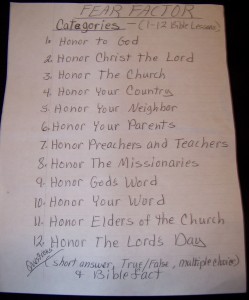 FEAR FACTOR
Categories - (1-12 Bible Lessons)
1. Honor to God
2. Honor Christ the Lord
3. Honor The Church
4. Honor Your Country
5. Honor Your Neighbor
6. Honor Your Parents
7. Honor Preachers and Teachers
8. Honor The Missionaries
9. Honor Gods Word
10. Honor Your Word
11. Honor Elders of the Church
12. Honor The Lords Day
Questions (short answer, True/False, multiple choice)
& Bible fact